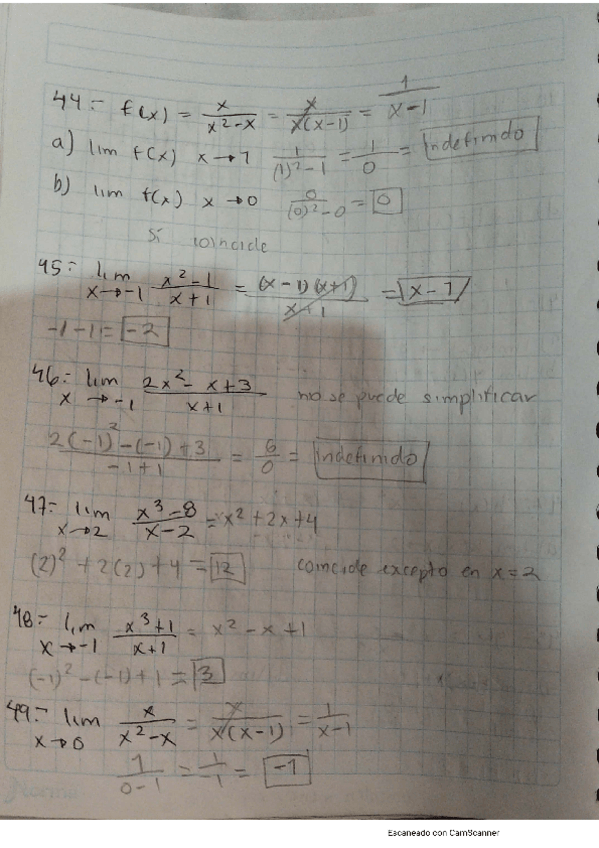 44.- f(x) = x/(x²-x) = x/(x(x-1)) = 1/(x-1)
a) lim f(x) x→1 1/((1)²-1) = 1/0 = indefinido
b) lim f(x) x→0 0/((0)²-0) = 0
Si coincide
45.- lim x→-1 (x²-1)/(x+1) = ((x-1)(x+1))/(x+1) = x-1
-1-1 = -2
46.- lim x→-1 (2x²-x+3)/(x+1) no se puede simplificar
(2(-1)²-(-1)+3)/(-1+1) = 6/0 = indefinido
47.- lim x→2 (x³-8)/(x-2) = x²+2x+4
(2)²+2(2)+4 = 12 coincide excepto en x=2
48.- lim x→-1 (x³+1)/(x+1) = x²-x+1
(-1)²-(-1)+1 = 3
49.- lim x→0 x/(x²-x) = x/(x(x-1)) = 1/(x-1)
1/(0-1) = 1/-1 = -1
Norma
Escaneado con CamScanner